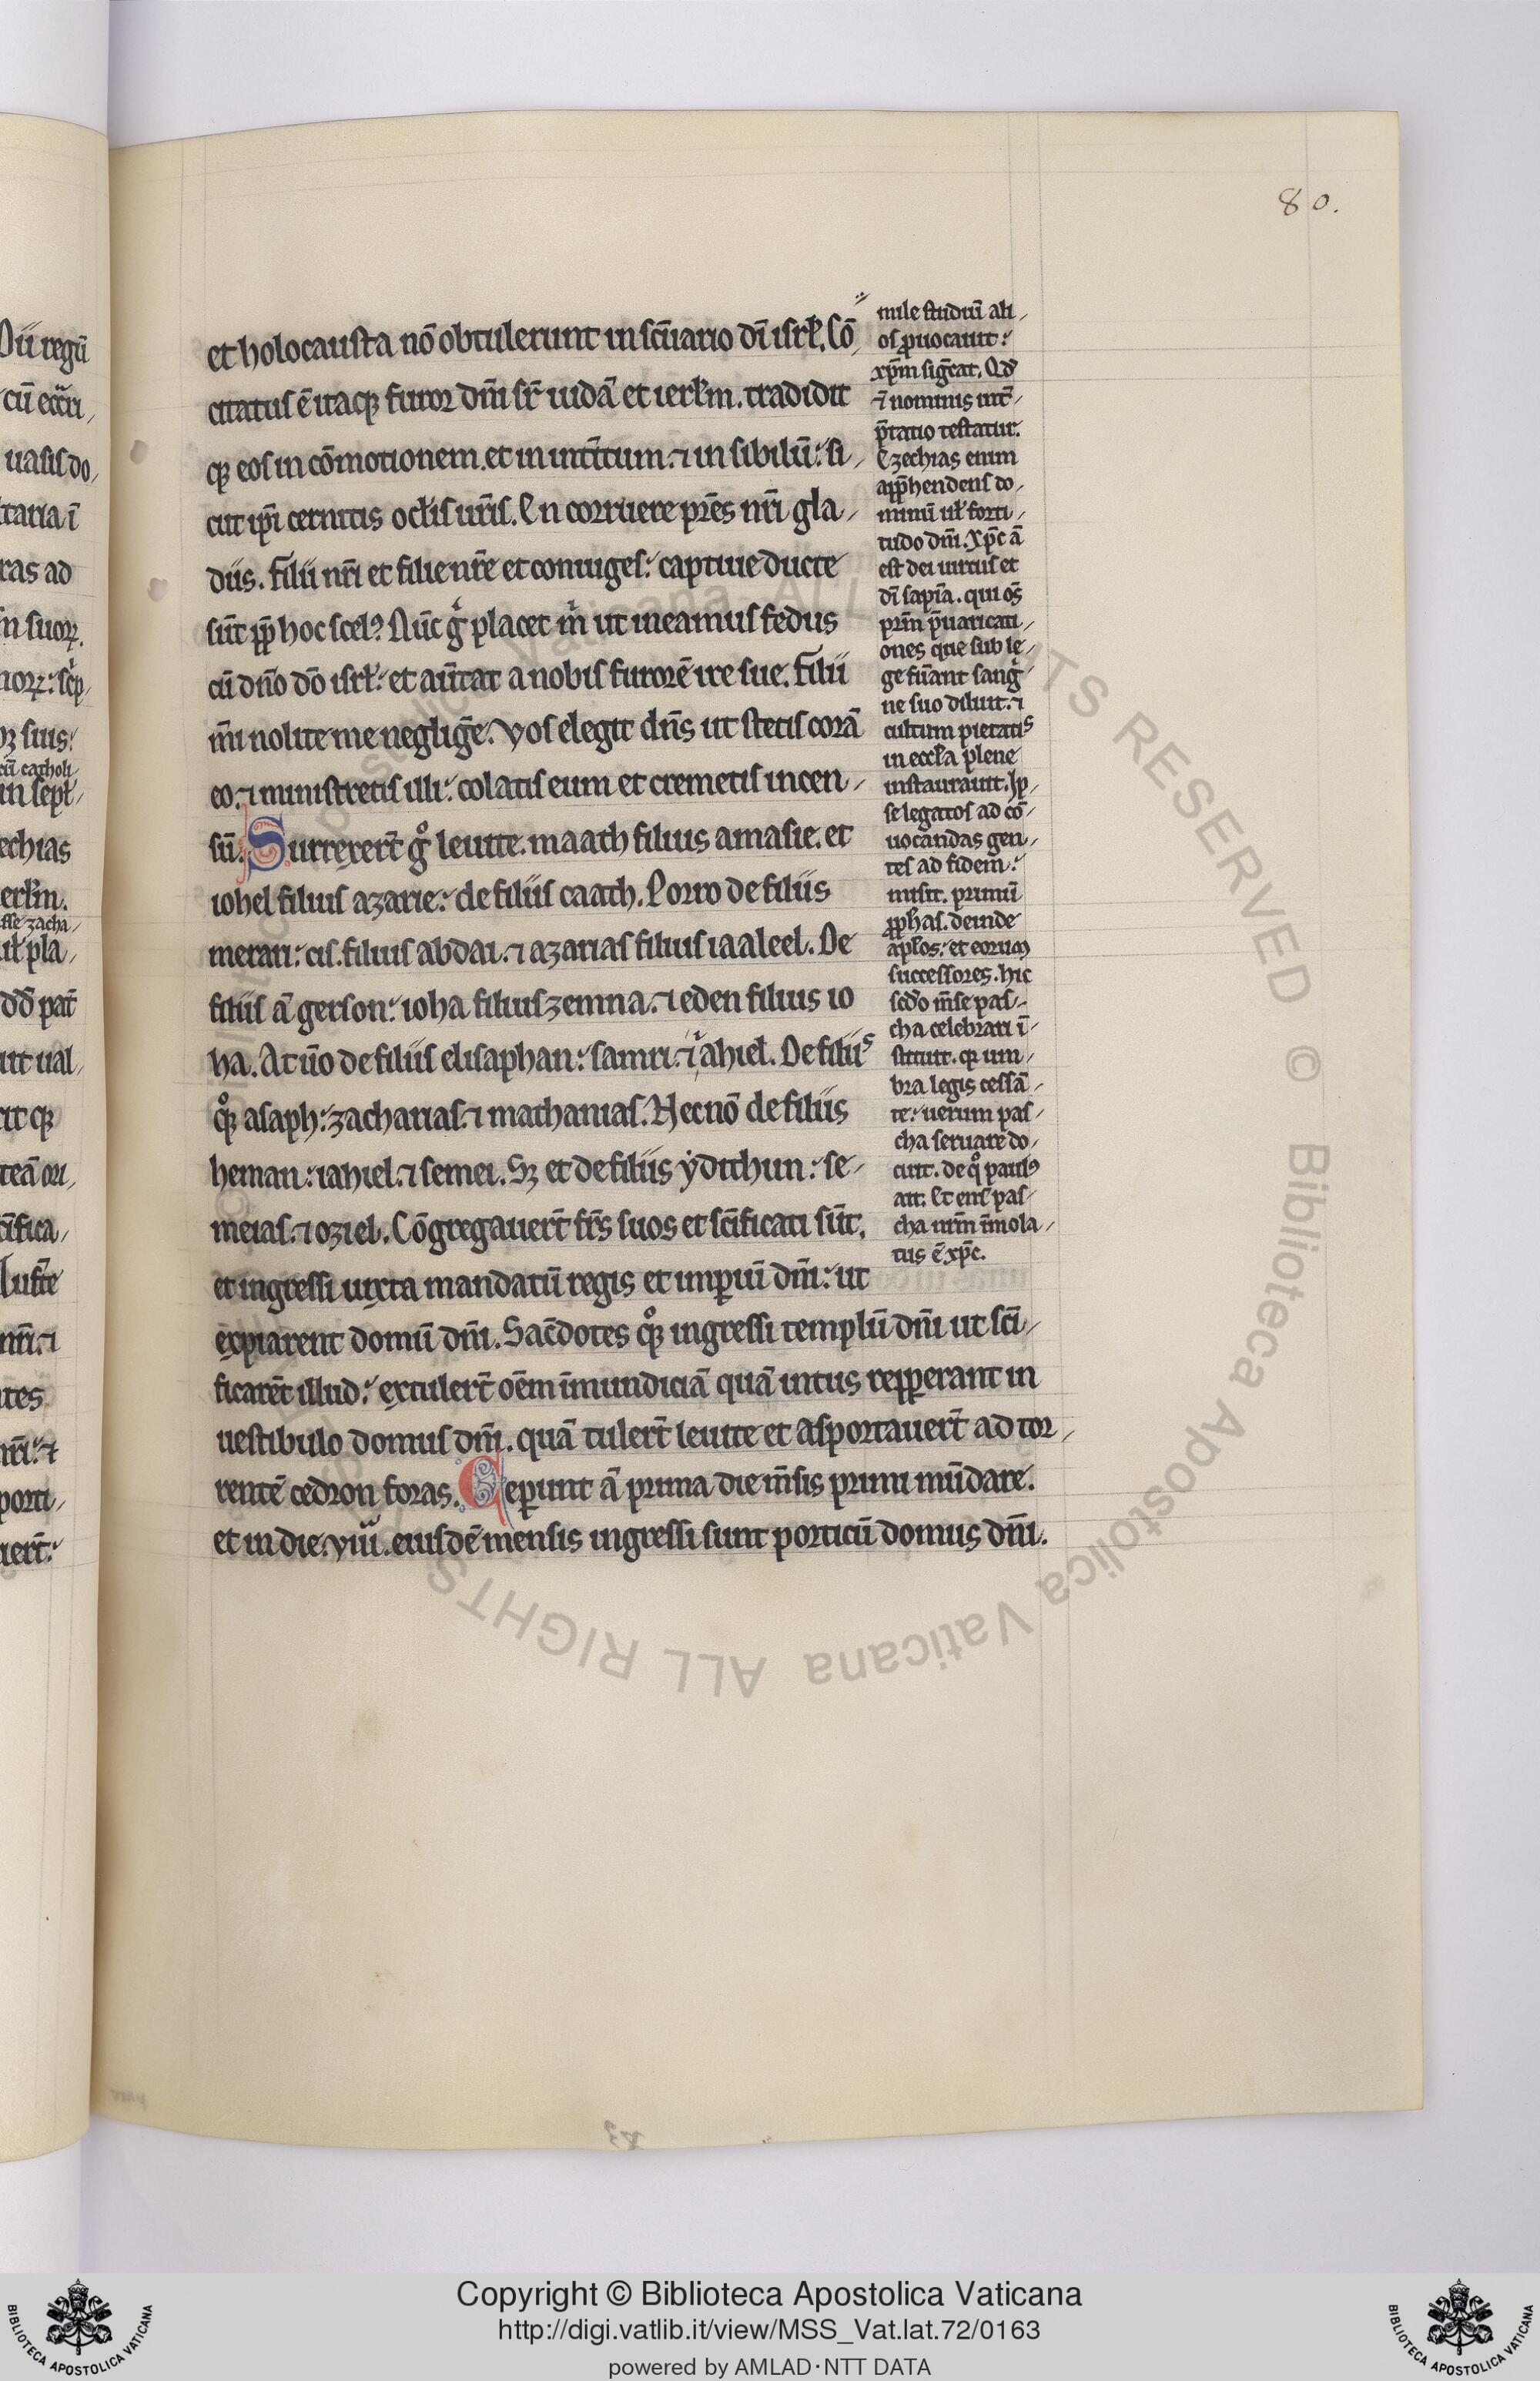 80.
et holocausta nō obtulerunt in scūario dī isrł. Cō
citatus ē itaqꝫ furor dñi sr̄ iudā et ierłm. tradidit
qꝫ eos in cōmotionem. et in int̄itum. ⁊ in sibilū: si
cut ip̄i cernitis oclis ur̄is. En corruere pr̄es nr̄i gla
diis. Filii nr̄i et filie nr̄e et coniuges: captiue ducte
sūt ꝓp̄ hoc scelꝰ. Nūc gͥ placet mͥ ut ineamus fedus
cū dño dō isrł: et aūtat a nobis furorē ire sue. Filii
m̄i nolite me negliḡe. Vos elegit dñs ut stetis corā
eo. ⁊ ministretis illi: colatis eum et cremetis incen
sū. Surrexert̄ gͦ leuite. maath filius amasie. et
iohel filius azarie: de filiis caath. Porro de filiis
merari: cis. filius abdai. ⁊ azarias filius iaaleel. De
filiis ā gerson: ioha filius zemna. ⁊ eden filius io
ha. At ūo de filiis elisaphan: samri. ⁊ iahiel. De filiis
qͦꝫ asaph: zacharias. ⁊ mathanias. Necnō de filiis
heman: iahiel. ⁊ semei. Sꝫ et de filiis ydithun: se
meias. ⁊ oziel. Cōgregauert̄ fr̄s suos et scīficati sūt.
et ingressi iuxta mandatū regis et imꝑiū dñi: ut
expiarent domū dñi. Sac̄dotes qͦꝫ ingressi templū dñi ut scī
ficarēt illud: extulert̄ oēm īmundiciā quā intus repꝑerant in
uestibulo domus dñi. quā tulert̄ leuite et asportauert̄ ad tor
rentē cedron foras. Ceꝑunt ā prima die m̄sis primi mūdare.
et in die. viii. eiusdē mensis ingressi sunt porticū domus dñi.
mile studiū ali
os ꝓuocauit:
xp̄m sig̅cat. Qđ
⁊ nominis int̄
p̄tatio testatur.
Ezechias enim
app̄hendens do
minū uł forti
tudo dñi. Xp̄c ā
est dei uirtus et
dī sapīa. qui os̄
prīm p̄uaricati
ones que sub le
ge fūant sangͥ
ne suo diluit. ⁊
cultum pietatis
in eccła plene
instaurauit. Ip
se legatos ad cō
uocandas gen
tes ad fidem:
misit. primū
ꝓphas. deinde
apłos: et eorum
successores. hic
scđo m̄se pas
cha celebrari ī
stituit. qꝫ um
bra legis cessā
te: uerum pas
cha seruare do
cuit. de qͦ paulꝰ
ait. Et eni pas
cha nr̄m īmola
tus ē xp̄c.
Copyright © Biblioteca Apostolica Vaticana
http://digi.vatlib.it/view/MSS_Vat.lat.72/0163
powered by AMLAD·NTT DATA